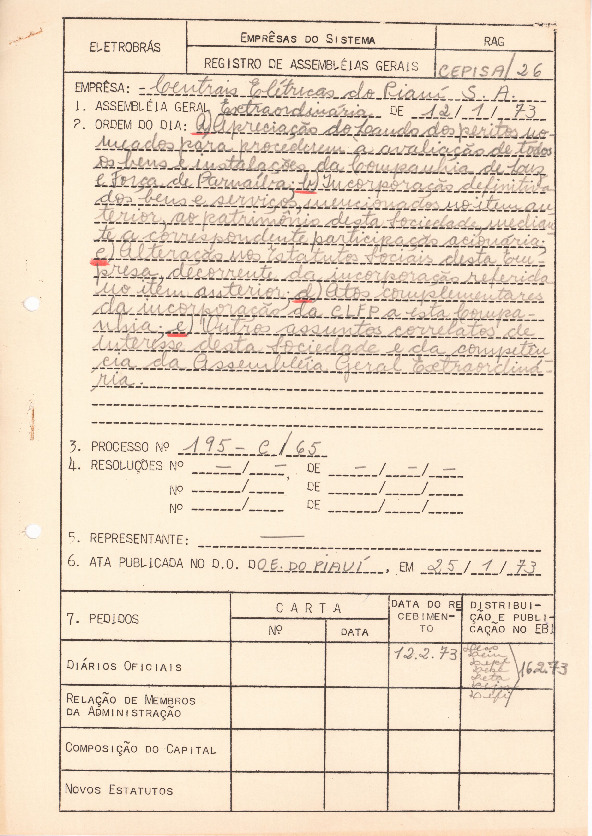 ELETROBRÁS
EMPRÊSAS DO SISTEMA
RAG
REGISTRO DE ASSEMBLÉIAS GERAIS
CEPISA/26
EMPRÊSA: Centrais Elétricas do Piauí S. A.
1. ASSEMBLÉIA GERAL Extraordinária DE 12/1/73
2. ORDEM DO DIA: a) Apreciação do Laudo dos peritos no-
meados para procederem a avaliação de todos
os bens e instalações da Companhia de Luz
e Força de Parnaíba; b) Incorporação definitiva
dos bens e serviços, mencionados no item an-
terior, ao patrimônio desta Sociedade, median-
te a correspondente participação acionária;
c) Alteração nos Estatutos Sociais desta Em-
presa, decorrente da incorporação referida
no item anterior; d) Atos complementares
da incorporação da CLFP a esta Compa-
nhia; e) Outros assuntos correlatos de
interesse desta Sociedade e da competên-
cia da Assembléia Geral Extraordiná-
ria.
3. PROCESSO Nº 195-C/65
4. RESOLUÇÕES Nº —/—, DE —/—/—
Nº / DE / /
Nº / DE / /
5. REPRESENTANTE: —
6. ATA PUBLICADA NO D.O. DO E. DO PIAUÍ, EM 25/1/73
7. PEDIDOS
CARTA
Nº
DATA
DATA DO RE
CEBIMEN-
TO
DISTRIBUI-
ÇÃO E PUBLI-
CAÇÃO NO EBI
DIÁRIOS OFICIAIS
12.2.73
16.2.73
RELAÇÃO DE MEMBROS
DA ADMINISTRAÇÃO
COMPOSIÇÃO DO CAPITAL
NOVOS ESTATUTOS